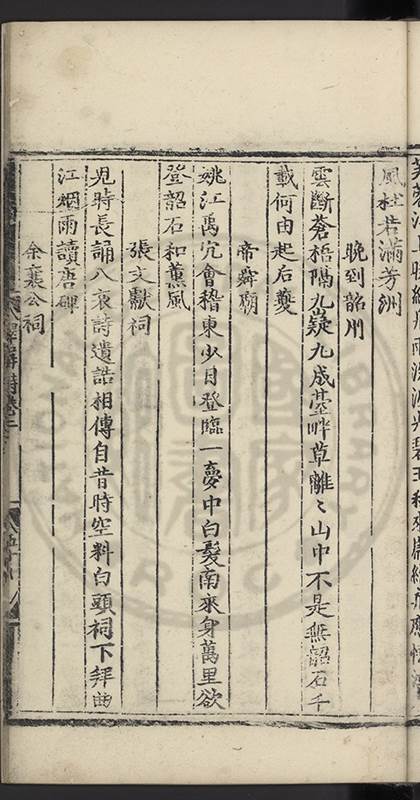 風杜若滿芳洲
晚到韶州
雲斷蒼梧隔九疑九成臺畔草離〻山中不是無韶石千
載何由起后夔
帝舜廟
姚江禹穴會稽東少日登臨一夢中白髮南來身萬里欲
登韶石和薰風
張文獻祠
兒時長誦八哀詩遺誥相傳自昔時空料白頭祠下拜曲
江烟雨讀唐碑
余襄公祠